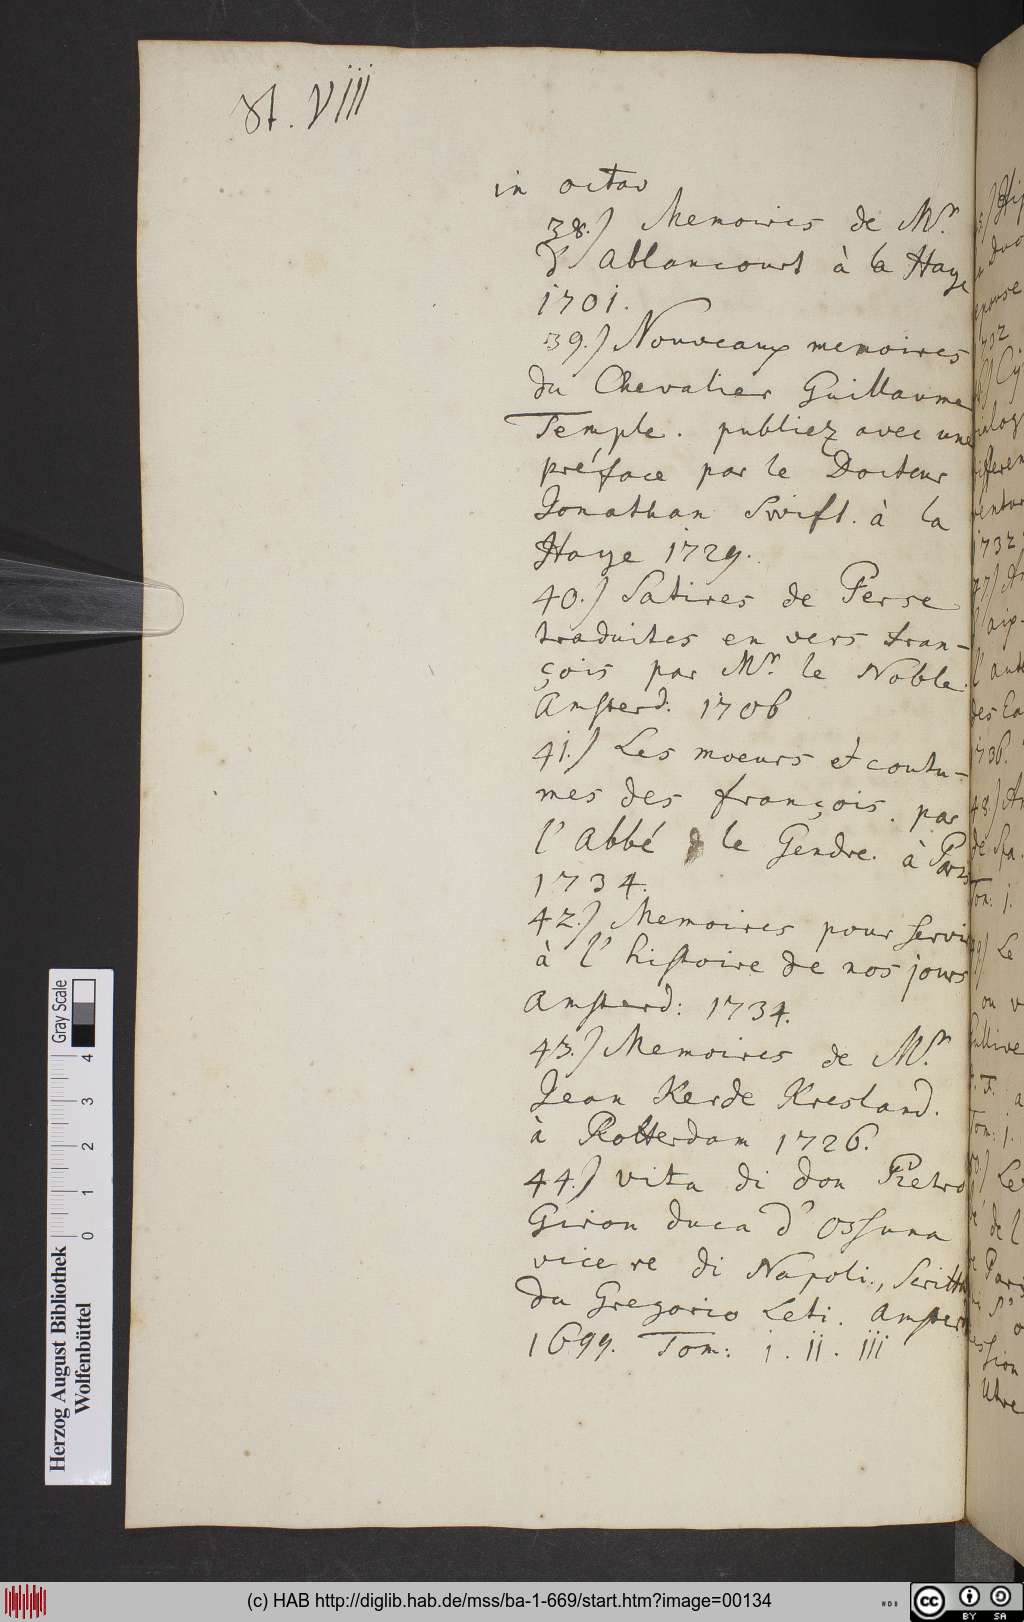 St. VIII
in octav
38.) Memoires de Mr.
d'Ablancourt à la Haye
1701.
39.) Nouveaux memoires
du Chevalier Guillaume
Temple. publiez avec une
préface par le Docteur
Jonathan Swift. à la
Haye 1729.
40.) Satires de Perse
traduites en vers fran-
çois par Mr. le Noble.
Amsterd: 1706
41.) Les moeurs et coutu-
mes des françois. par
l'Abbé le Gendre. à Paris
1734.
42.) Memoires pour servir
à l'histoire de nos jours
Amsterd: 1734.
43.) Memoires de Mr.
Jean Kerde Kresland.
à Rotterdam 1726.
44.) vita di don Pietro
Giron duca d'Ossuna
vice re di Napoli, Scritta
da Gregorio Leti. Amsterd
1699. Tom: i. ii. iii
1732
1732.
l'aut
des Ea
1736.
48.) Ar
de Spa.
Tom: 1.
Le
ou v
Tom: 1.
Le
de l
Paris
Gray Scale
4
3
2
1
0
Herzog August Bibliothek
Wolfenbüttel
(c) HAB http://diglib.hab.de/mss/ba-1-669/start.htm?image=00134
cc BY SA